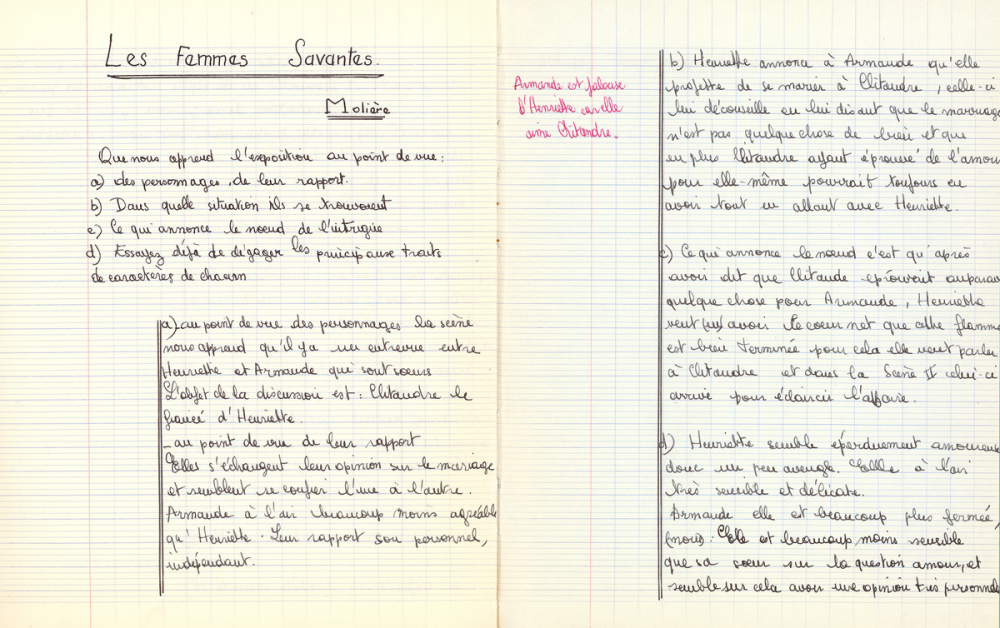 Les Femmes Savantes.
Molière
Que nous apprend l'exposition au point de vue :
a) des personnages, de leur rapport.
b) Dans quelle situation ils se trouvent
c) Ce qui annonce le noeud de l'intrigue
d) Essayez déjà de dégager les principaux traits
de caractères de chacun
a) au point de vue des personnages la scène
nous apprend qu'il y a une entrevue entre
Henriette et Armande qui sont soeurs
L'objet de la discussion est : Clitandre le
fiancé d'Henriette.
- au point de vue de leur rapport
Elles s'échangent leur opinion sur le mariage
et semblent se confier l'une à l'autre.
Armande à l'air beaucoup moins agréable
qu'Henriette. Leur rapport son personnel,
indépendant.
Armande est jalouse
d'Henriette car elle
aime Clitandre.
b) Henriette annonce à Armande qu'elle
projette de se marier à Clitandre, celle-ci
lui déconseille en lui disant que le mariage
n'est pas quelque chose de bien et que
en plus Clitandre ayant éprouvé de l'amour
pour elle-même pourrait toujours en
avoir tout en allant avec Henriette.
c) Ce qui annonce le noeud c'est qu'après
avoir dit que Clitandre éprouvait auparav
quelque chose pour Armande, Henriette
veut avoir le coeur net que cette flamme
est bien terminée pour cela elle veut parler
à Clitandre et dans la Scène II celui-ci
arrive pour éclaircir l'affaire.
d) Henriette semble éperduement amoureuse
donc un peu aveugle. Elle à l'air
très sensible et délicate.
Armande elle est beaucoup plus fermée,
Elle est beaucoup moins sensible
que sa soeur sur la question amour, et
semble sur cela avoir une opinion très personnelle